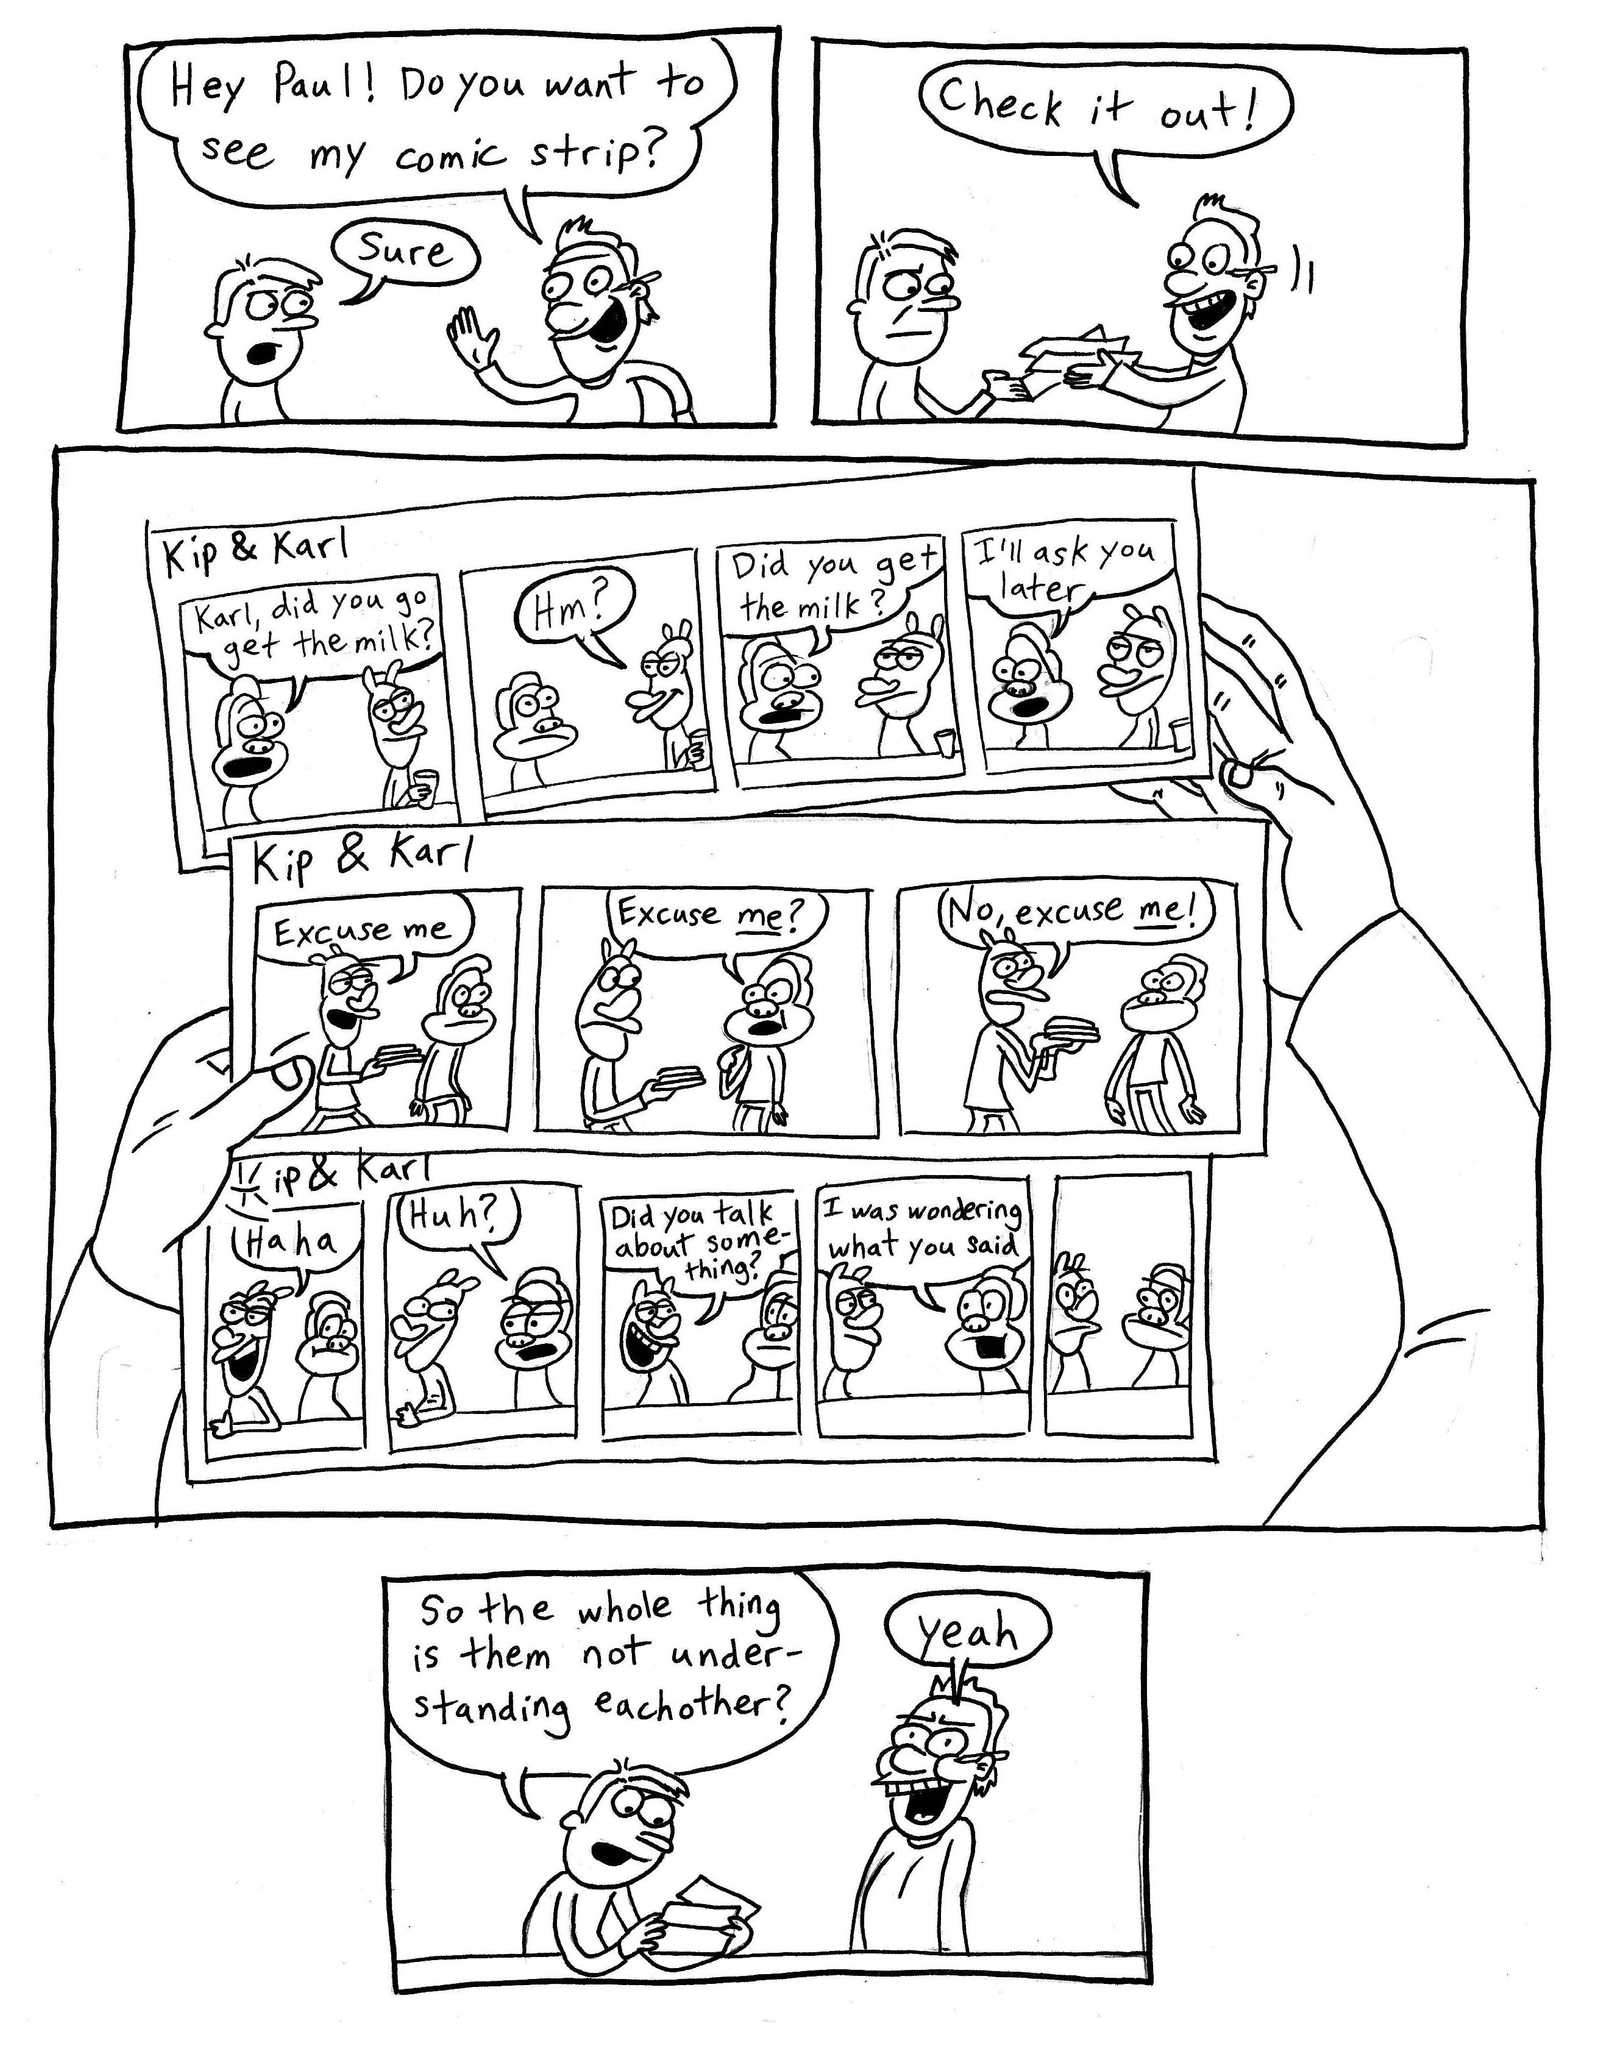 Hey Paul! Do you want to
see my comic strip?
Sure
Check it out!
Kip & Karl
Karl, did you go
get the milk?
Hm?
Did you get
the milk?
I'll ask you
later
Kip & Karl
Excuse me
Excuse me?
No, excuse me!
Kip & Karl
Haha
Huh?
Did you talk
about some-
thing?
I was wondering
what you said
So the whole thing
is them not under-
standing eachother?
yeah